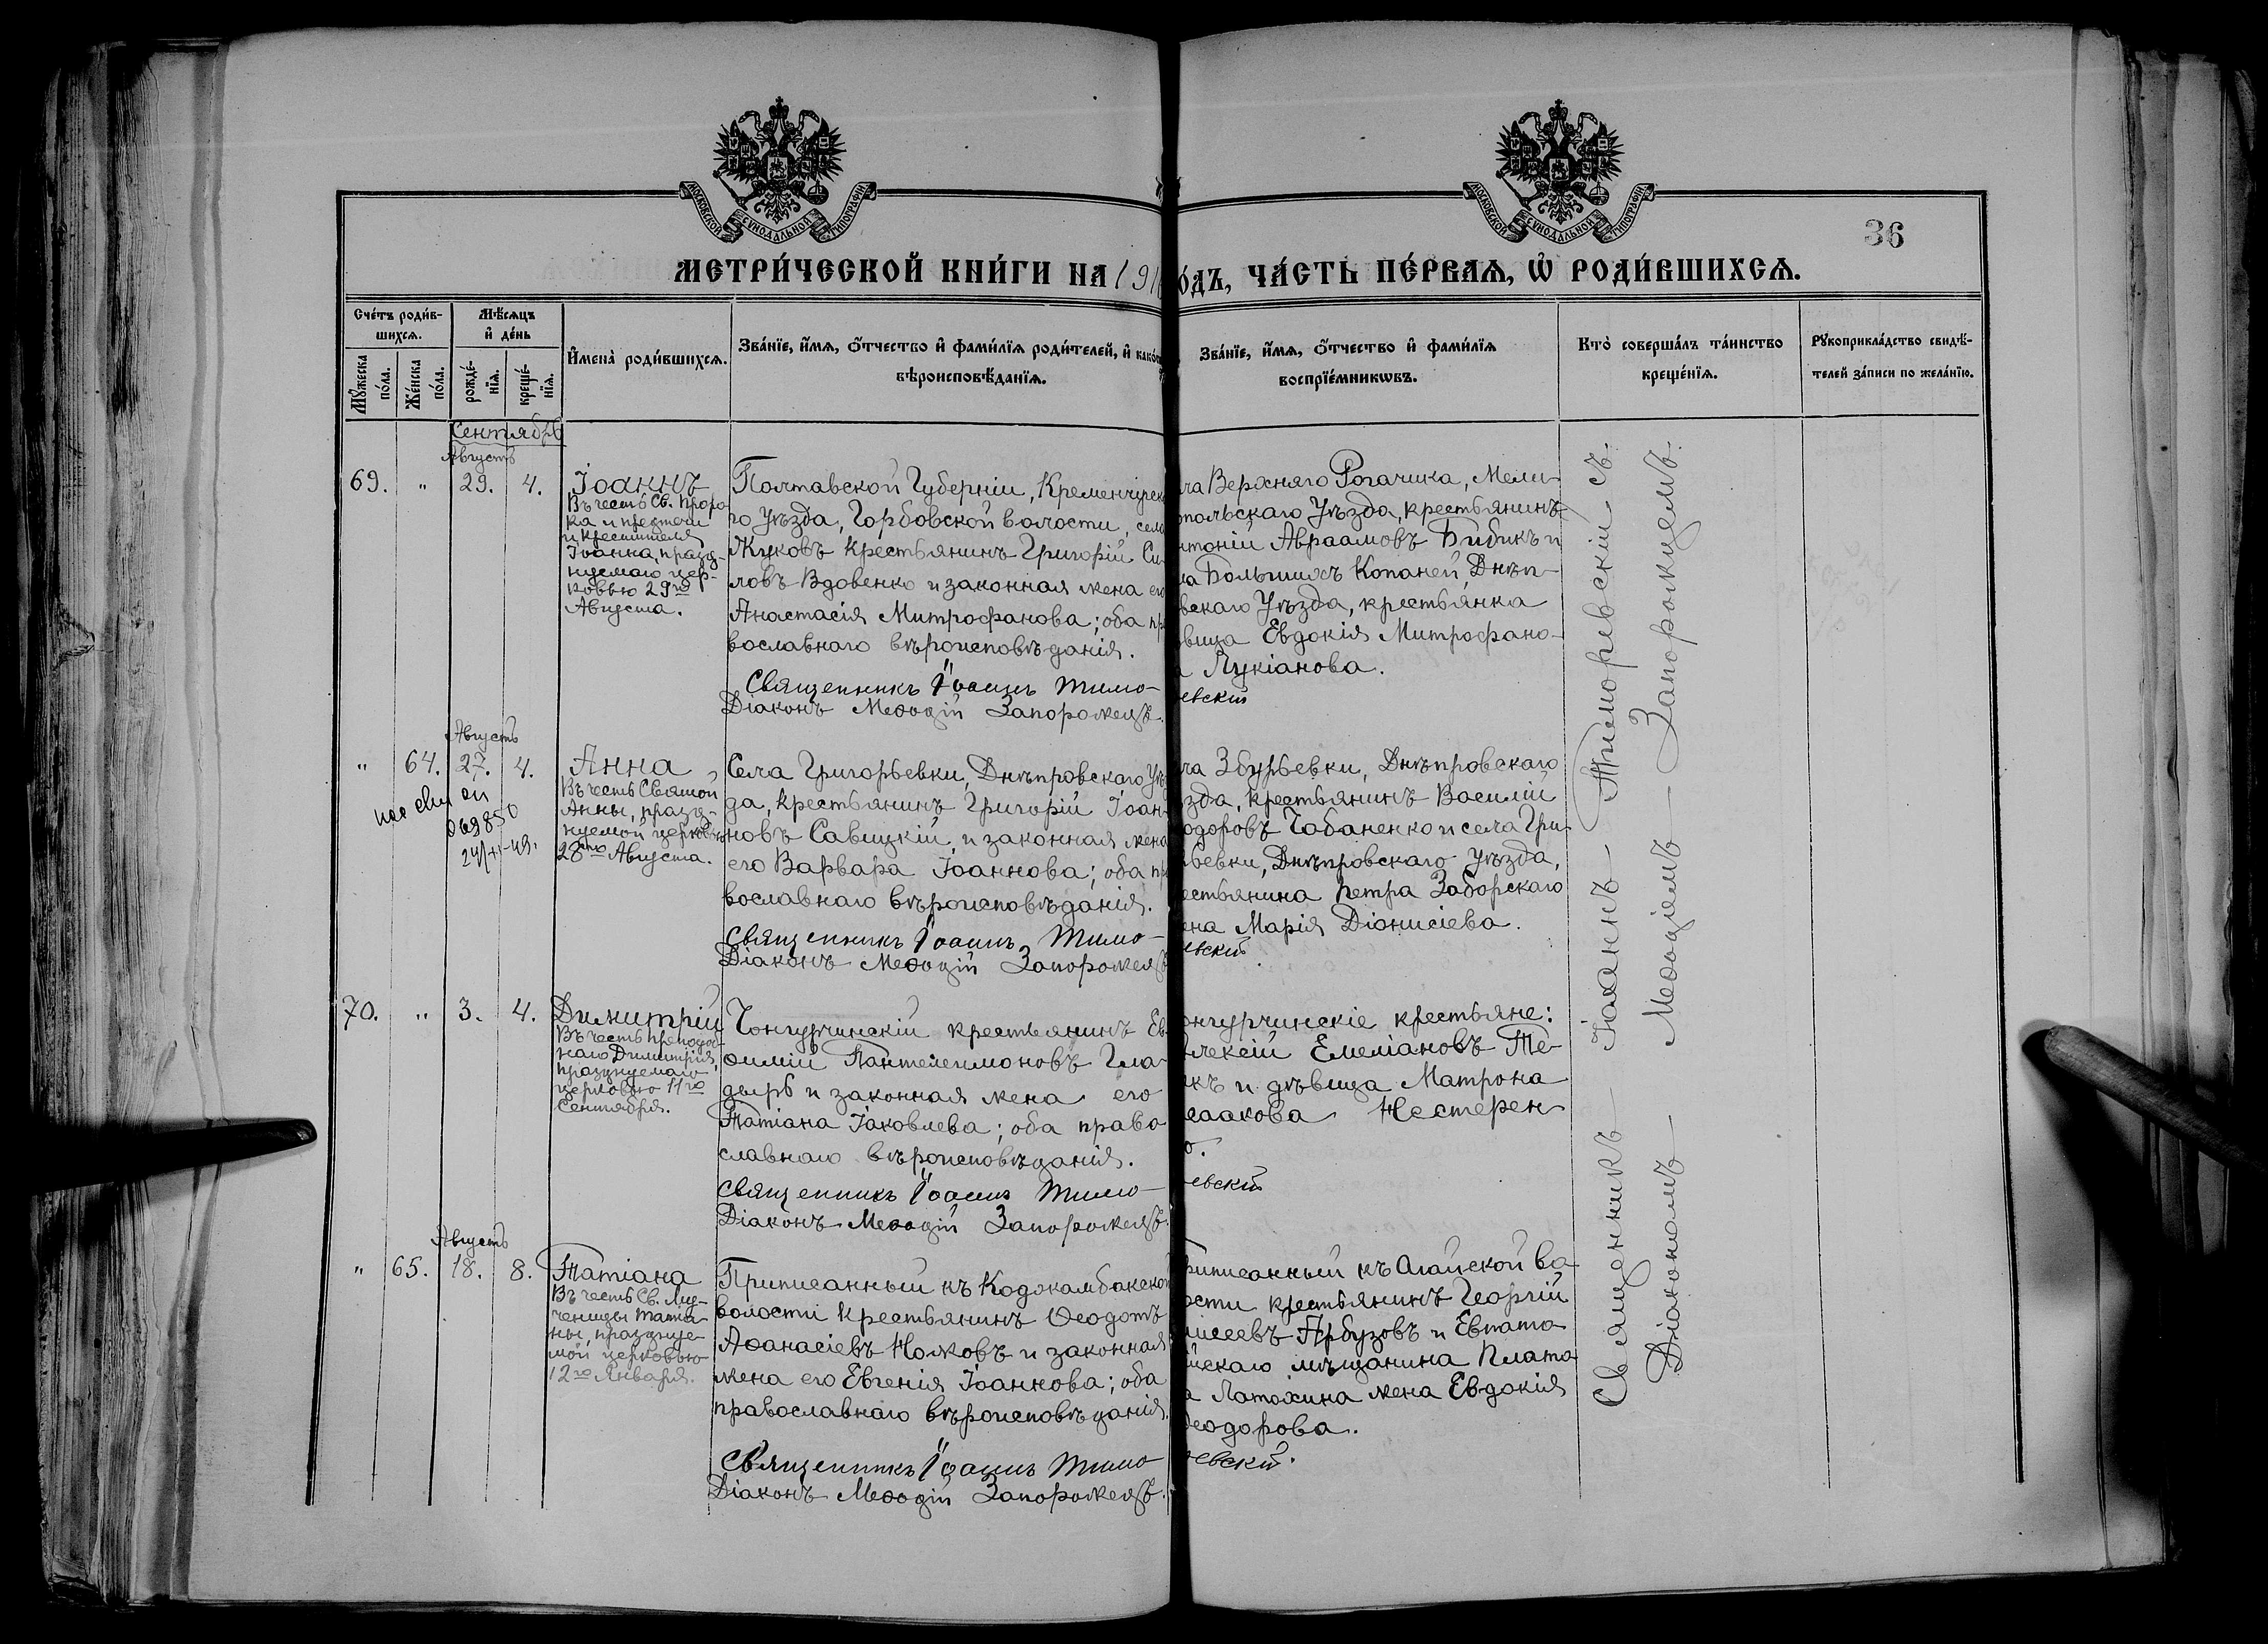 МОСКОВСКОЙ СѴНОДАЛЬНОЙ ТИПОГРАФІИ
МОСКОВСКОЙ СѴНОДАЛЬНОЙ ТИПОГРАФІИ
36
МЕТРИ́ЧЕСКОЙ КНИ́ГИ НА 191
О́ДЪ, ЧА́СТЬ ПЕ́РВАѦ, Ѡ РОДИ́ВШИХСѦ.
Сче́тъ роди́в-
шихсѧ.
Мꙋ́жеска по́ла.
Же́нска по́ла.
Мѣ́сѧцъ
и҆ де́нь
рожде́-
нїѧ.
креще́-
нїѧ.
И҆мена̀ роди́вшихсѧ.
Зва́нїе, и҆́мѧ, ѻ҆́тчество и҆ фами́лїѧ роди́телей, и҆ како́
вѣроисповѣ́данїѧ.
Зва́нїе, и҆́мѧ, ѻ҆́тчество и҆ фами́лїѧ
воспрїе́мникѡвъ.
Кто̀ соверша́лъ та́инство
креще́нїѧ.
Рꙋкоприкла́дство свидѣ́-
телей за́писи по жела́нїю.
Сентябрь
Августъ
69. " 29. 4. Іоаннъ
Въ честь Св. Проро-
ка и предтечи
и Крестителя
Іоанна, празд-
нуемаго цер-
ковью 29го
Августа.
Полтавской Губерніи, Кременчугск
го Уѣзда, Горбовской волости, села
Жуковъ крестьянинъ Григорій Си-
ловъ Вдовенко и законная жена его
Анастасія Митрофанова; оба пра
вославнаго вѣроисповѣданія.
Священникъ Іоаннъ Тимо-
Діаконъ Меѳодій Запорожецъ.
ла Верхняго Рогачика, Мели-
опольскаго Уѣзда, крестьянинъ
нтоній Авраамовъ Бибикъ и
ла Большихъ Копаней, Днѣп-
вскаго Уѣзда, крестьянка
вица Евдокія Митрофано-
а Лукіанова.
евскій
Августъ
" 64. 27. 4. Анна
Въ честь Святой
Анны, празд-
нуемой церковью
28го Августа.
069850
Села Григорьевки, Днѣпровскаго Уѣз
да, крестьянинъ Григорій Іоан-
новъ Савицкій, и законная жена
его Варвара Іоаннова; оба пра
вославнаго вѣроисповѣданія.
Священникъ Іоаннъ Тимо-
Діаконъ Меѳодій Запорожецъ
ла Збурьевки, Днѣпровскаго
зда, крестьянинъ Василій
одоровъ Чабаненко и села Гри-
ьевки, Днѣпровскаго Уѣзда,
естьянина Петра Заборскаго
ена Марія Діонисіева.
евскій
70. " 3. 4. Димитрій
Въ честь преподоб-
наго Димитрія,
празднуемаго
церковью 11го
Сентября.
Чонгурчинскій крестьянинъ Ев
ѳимій Пантелеимоновъ Гла-
дырь и законная жена его
Татіана Іаковлева; оба право
славнаго вѣроисповѣданія.
Священникъ Іоаннъ Тимо-
Діаконъ Меѳодій Запорожецъ.
онгурчинскіе крестьяне:
лексій Емеліановъ Те-
къ и дѣвица Матрона
саакова Нестерен
о.
евскій
Августъ
" 65. 18. 8. Татіана
Въ честь Св. Му-
ченицы Татіа-
ны, празднуе-
мой церковью
12го Января.
Приписанный къ Коджамбакской
волости крестьянинъ Ѳеодотъ
Аѳанасіевъ Ножовъ и законная
жена его Евгенія Іоаннова; оба
православнаго вѣроисповѣданія.
Священникъ Іоаннъ Тимо
Діаконъ Меѳодій Запорожецъ.
риписанный къ Агайской во
ости крестьянинъ Георгій
исеевъ Арбузовъ и Евпато
йскаго мѣщанина Плато
а Латохина жена Евдокія
еодорова.
евскій.
Священникъ — Іоаннъ — Тимоѳевскій съ
Діакономъ — Меѳодіемъ — Запорожцемъ.